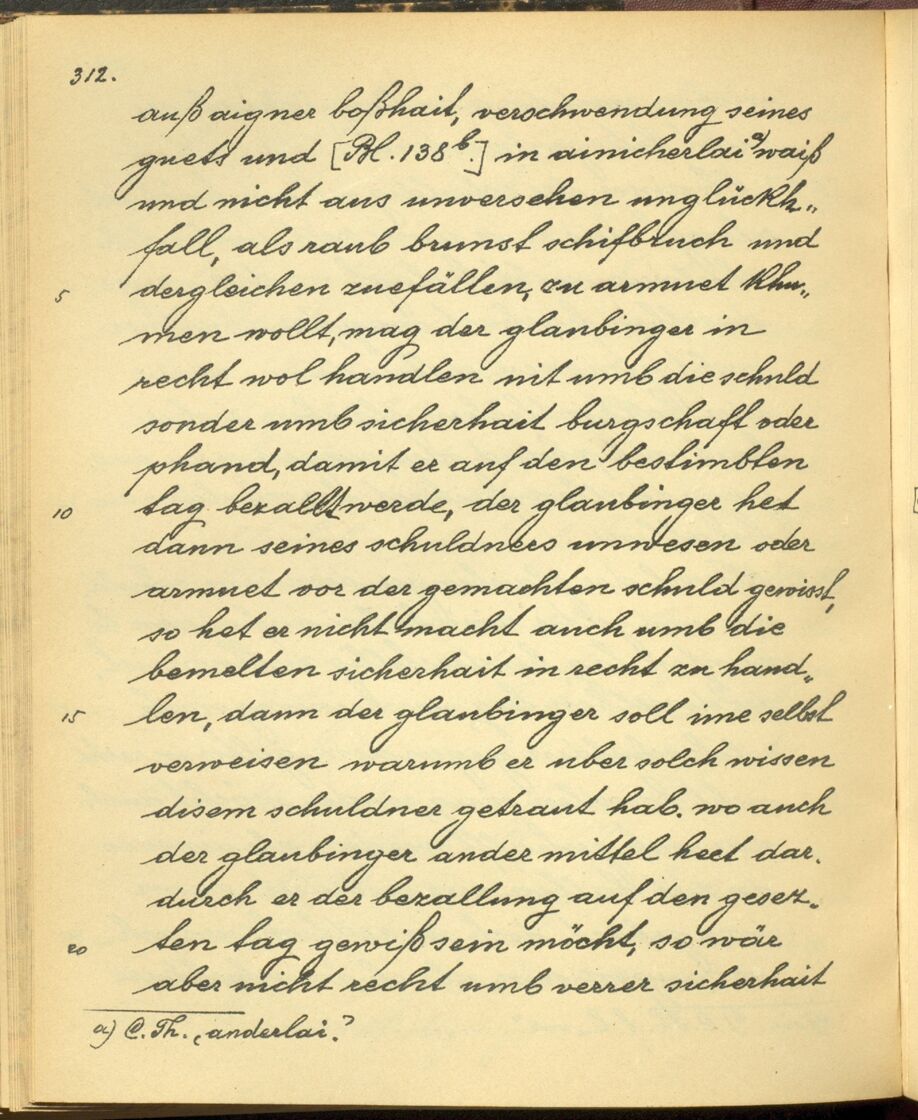 312.
auß aigner boßhait, verschwendung seines
guets und [Bl. 138b.] in ainicherlai a) waiß
und nicht aus unversehen unglückh„
fall, als raub brunst schifbruch und
5 dergleichen zuefällen, zu armuet khu„
men wollt, mag der glaubinger in
recht wol handlen nit umb die schuld
sonder umb sicherhait burgschaft oder
phand, damit er auf den bestimbten
10 tag bezallt werde, der glaubinger het
dann seines schuldners unwesen oder
armuet vor der gemachten schuld gewisst,
so het er nicht macht auch umb die
bemelten sicherhait in recht zu hand„
15 len, dann der glaubinger soll ime selbst
verweisen warumb er uber solch wissen
disem schuldner getraut hab. wo auch
der glaubinger ander mittel heet dar„
durch er der bezallung auf den gesez„
20 ten tag gewiß sein möcht, so wär
aber nicht recht umb verrer sicherhait
a) C. Th. „anderlai“?